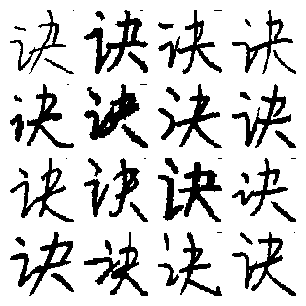 诀诀诀诀
诀诀决诀
诀诀诀诀
诀诀诀诀